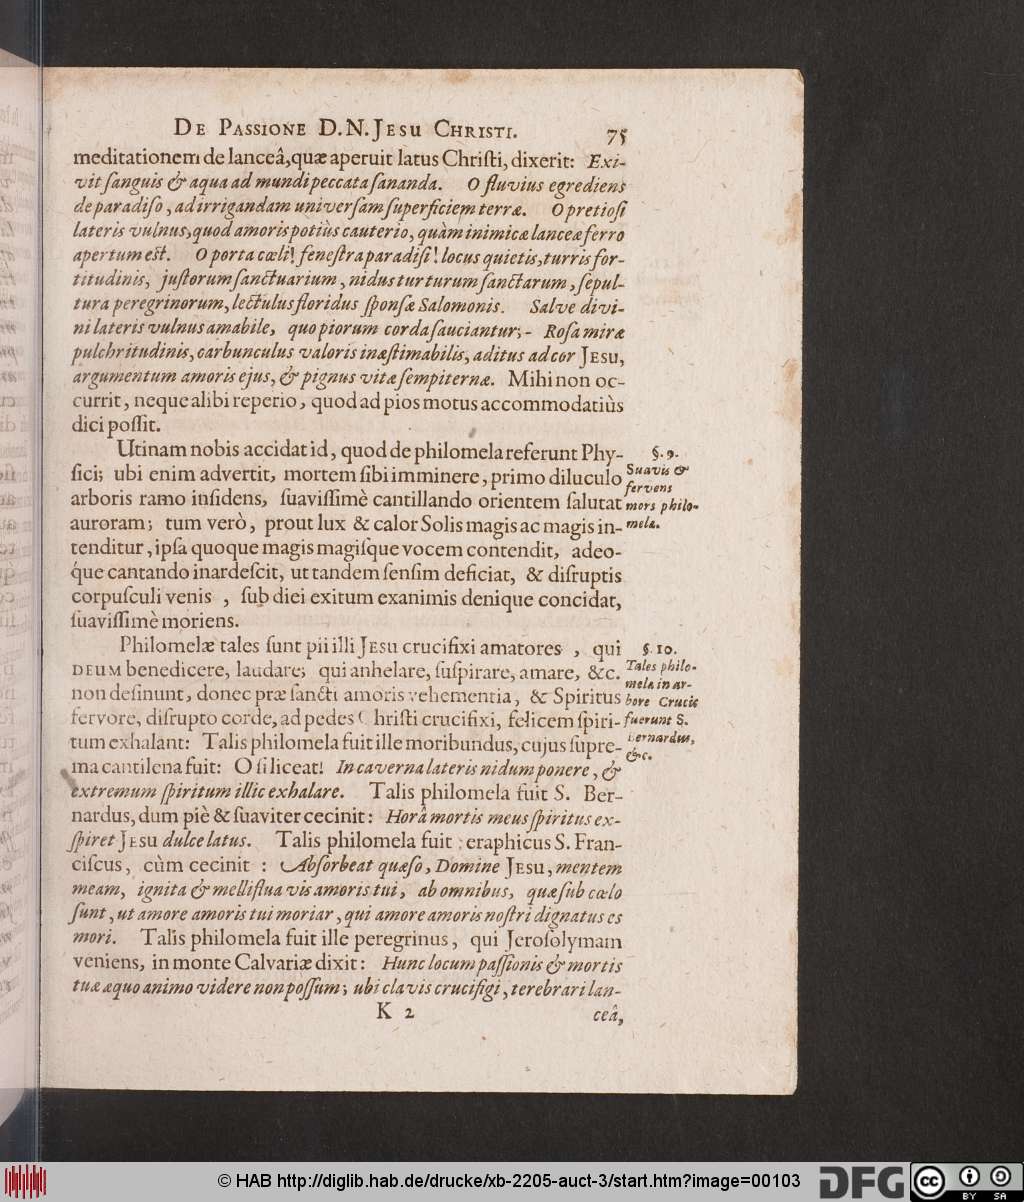 De Passione D.N. Jesu Christi. 75
meditationem de lanceâ, quæ aperuit latus Chriſti, dixerit: Exi-
vit ſanguis & aqua ad mundi peccata ſananda. O fluvius egrediens
de paradiſo, ad irrigandam univerſam ſuperficiem terræ. O pretioſi
lateris vulnus, quod amoris potiùs cauterio, quàm inimicæ lanceæ ferro
apertum eſt. O porta cœli! feneſtra paradiſi! locus quietis, turris for-
titudinis, juſtorum ſanctuarium, nidus turturum ſanctarum, ſepul-
tura peregrinorum, lectulus floridus ſponſæ Salomonis. Salve divi-
ni lateris vulnus amabile, quo piorum corda ſauciantur; - Roſa miræ
pulchritudinis, carbunculus valoris inæſtimabilis, aditus ad cor Jesu,
argumentum amoris ejus, & pignus vitæ ſempiternæ. Mihi non oc-
currit, neque alibi reperio, quod ad pios motus accommodatiùs
dici poſſit.
Utinam nobis accidat id, quod de philomela referunt Phy-
ſici; ubi enim advertit, mortem ſibi imminere, primo diluculo
arboris ramo inſidens, ſuaviſſimè cantillando orientem ſalutat
auroram; tum verò, prout lux & calor Solis magis ac magis in-
tenditur, ipſa quoque magis magiſque vocem contendit, adeo-
q́ue cantando inardeſcit, ut tandem ſenſim deficiat, & diſruptis
corpuſculi venis, ſub diei exitum exanimis denique concidat,
ſuaviſſimè moriens.
§. 9.
Suavis &
fervens
mors philo-
melæ.
Philomelæ tales ſunt pii illi Jesu crucifixi amatores, qui
DEUM benedicere, laudare; qui anhelare, ſuſpirare, amare, &c.
non deſinunt, donec præ ſancti amoris vehementia, & Spiritus
fervore, diſrupto corde, ad pedes Chriſti crucifixi, felicem ſpiri-
tum exhalant: Talis philomela fuit ille moribundus, cujus ſupre-
ma cantilena fuit: O ſi liceat! In caverna lateris nidum ponere, &
extremum ſpiritum illic exhalare. Talis philomela fuit S. Ber-
nardus, dum piè & ſuaviter cecinit: Horâ mortis meus ſpiritus ex-
ſpiret Jesu dulce latus. Talis philomela fuit ſeraphicus S. Fran-
ciſcus, cùm cecinit: Abſorbeat quæſo, Domine Jesu, mentem
meam, ignita & melliflua vis amoris tui, ab omnibus, quæ ſub cœlo
ſunt, ut amore amoris tui moriar, qui amore amoris noſtri dignatus es
mori. Talis philomela fuit ille peregrinus, qui Jeroſolymam
veniens, in monte Calvariæ dixit: Hunc locum paſſionis & mortis
tuæ æquo animo videre non poſſum; ubi clavis crucifigi, terebrari lan-
§. 10.
Tales philo-
melæ in ar-
bore Crucis
fuerunt S.
Bernardus,
&c.
K 2 ceâ,
© HAB http://diglib.hab.de/drucke/xb-2205-auct-3/start.htm?image=00103
DFG
cc BY SA